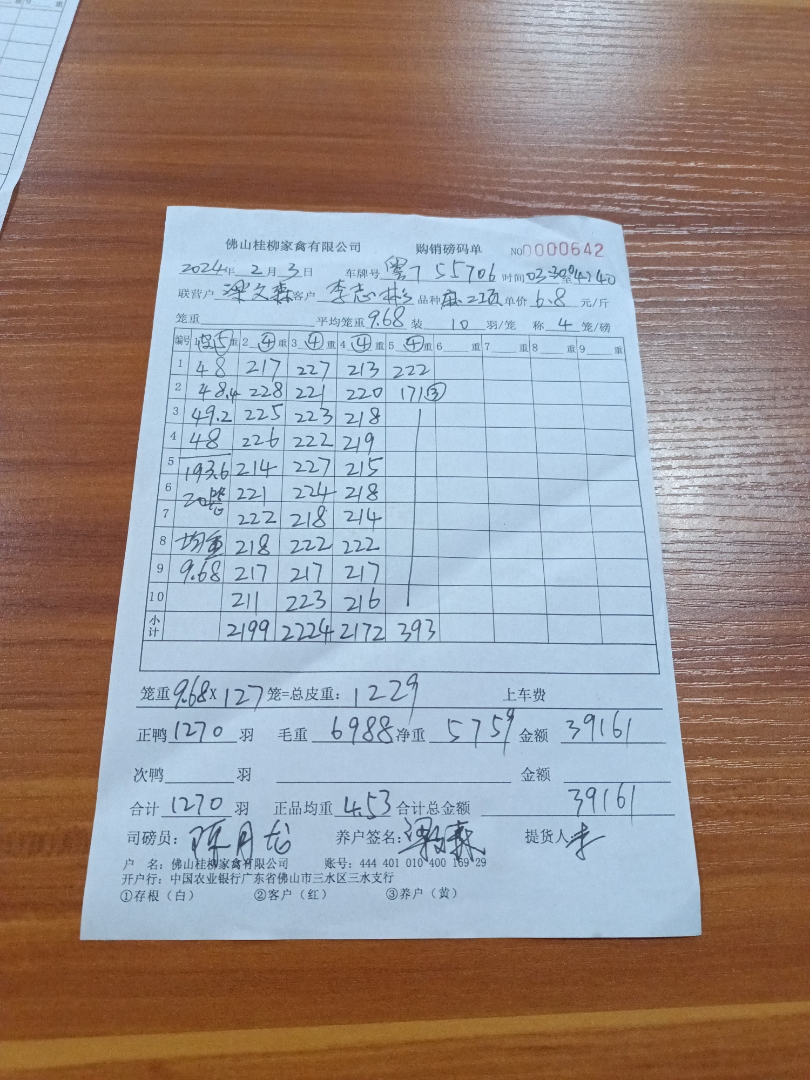 佛山桂柳家禽有限公司 购销磅码单 NO0000642
2024年2月3日 车牌号 粤 55706 时间03:30至04:40
联营户 梁文森 客户 李志彬 品种 单价6.8元/斤
笼重 平均笼重9.68 装10羽/笼 称4笼/磅
编号 1 ⑤重 2 ④重 3 ④重 4 ④重 5 ④重 6 重 7 重 8 重 9 重
1 48 217 227 213 222
2 48.4 228 221 220 171③
3 49.2 225 223 218
4 48 226 222 219
5 193.6 214 227 215
6 20 221 224 218
7 222 218 214
8 均重 218 222 222
9 9.68 217 217 217
10 211 223 216
小计 2199 2224 2172 393
笼重9.68X127笼=总皮重：1229 上车费
正鸭1270羽 毛重6988净重5759金额39161
次鸭 羽 金额
合计1270羽 正品均重4.53合计总金额39161
司磅员： 养户签名： 提货人 李
户 名：佛山桂柳家禽有限公司 账号：444 401 010 400 169 29
开户行：中国农业银行广东省佛山市三水区三水支行
①存根（白） ②客户（红） ③养户（黄）